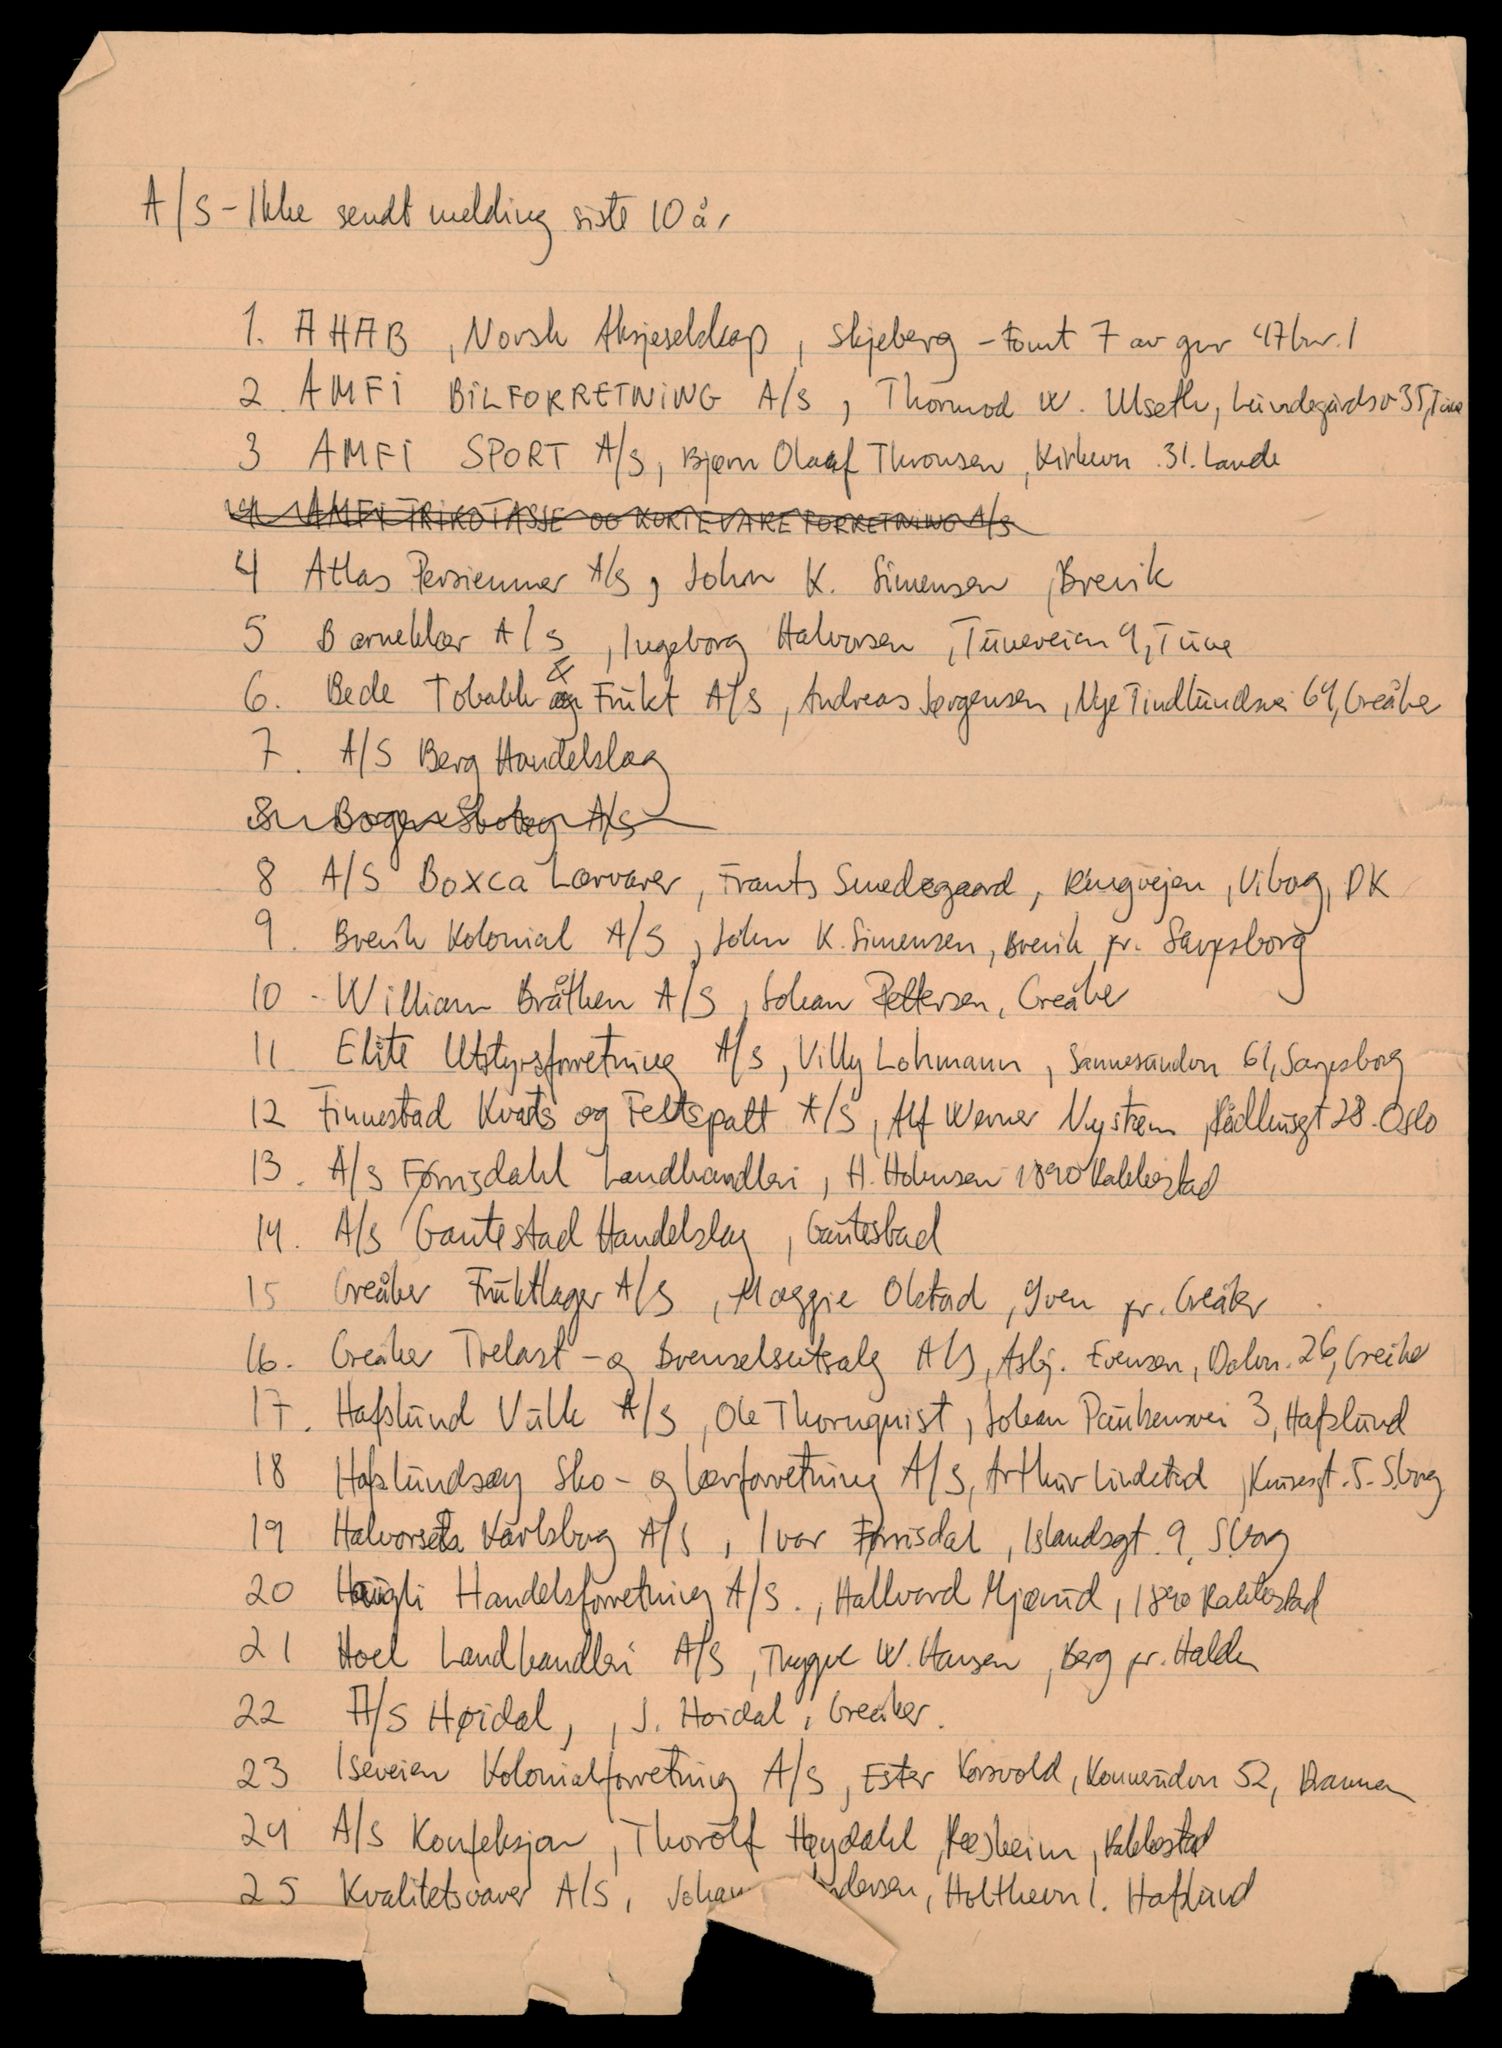 A/S - Ikke sendt melding siste 10 år
1. AHAB, Norsk Aksjeselskap, Skjeberg - Tomt 7 av gnr 47 bnr. 1
2. AMFI BILFORRETNING A/S, Thormod W. Ulseth, Lundegårdsv 35, Tune
3 AMFI SPORT A/S, Bjørn Olaf Thronsen, Kirkevn. 31. Lande
4 AMFI TRIKOTASJE OG KORTEVAREFORRETNING A/S
4 Atlas Persienner A/S, John K. Simensen, Brevik
5 Barneklær A/S, Ingeborg Halvorsen, Tuneveien 9, Tune
6. Bede Tobakk & Frukt A/S, Andreas Jørgensen, Nye Tindlundvei 64, Greåker
7. A/S Berg Handelslag
8. Borgen Skotøy A/S
8 A/S Boxca Lærvarer, Frants Smedegaard, Ringvejen, Viborg, DK
9. Brevik Kolonial A/S, John K. Simensen, Brevik pr. Sarpsborg
10 - William Bråthen A/S, Johan Pettersen, Greåker
11 Elite Utstyrsforretning A/S, Villy Lohmann, Sannesundvn 61, Sarpsborg
12 Finnestad Kvarts og Feltspatt A/S, Alf Werner Nystrøm, Rådhusgt 28. Oslo
13. A/S Førrisdahl Landhandleri, H. Holmsen 1890 Rakkestad
14. A/S Gautestad Handelslag, Gautestad
15 Greåker Fruktlager A/S, Maggie Olstad, Yven pr. Greåker
16. Greåker Trelast- og Brenselsutsalg A/S, Asbj. Evensen, Dalvn. 26, Greåker
17. Hafslund Vulk A/S, Ole Thornquist, Johan Paulsensvei 3, Hafslund
18 Hafslundsøy Sko- og lærforretning A/S, Arthur Lindstad, Kirkesgt. 5. S.borg
19 Halvorsen Karlsborg A/S, Ivar Førrisdal, Islandsgt. 9. S.borg
20 Haugli Handelsforretning A/S., Hallvard Mjærud, 1890 Rakkestad
21 Hoel Landhandleri A/S, Trygve W. Hansen, Berg pr. Halden
22 A/S Høidal, , J. Høidal, Greåker.
23 Iseveien Kolonialforretning A/S, Ester Korsvold, Konnerudvn 52, Drammen
24 A/S Konfeksjon, Thorolf Høydahl, Rakkestad
25 Kvalitetsvarer A/S, Johan Andersen, Holthevn 1. Hafslund